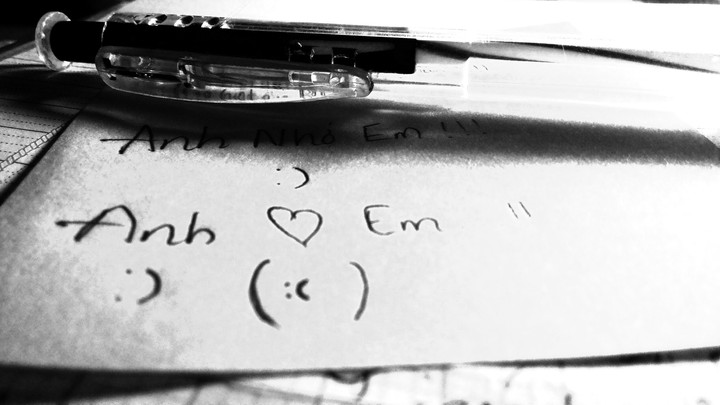 Anh Nhớ Em !!!
:)
Anh ♡ Em "
:) (:( )